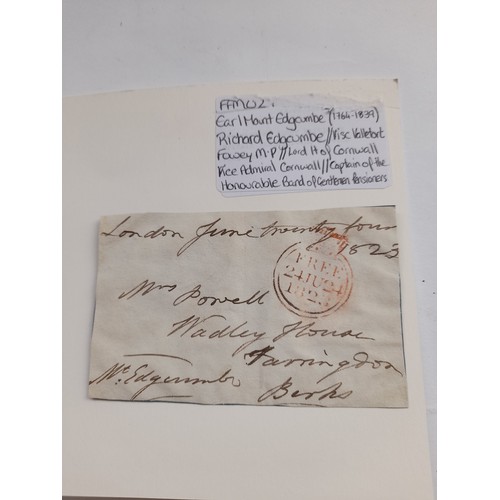 FFMU2.
Earl Mount Edgcumbe (1764-1839)
Richard Edgecumbe // Visc Valletort
Fowey M.P // Lord Lt of Cornwall
Vice Admiral Cornwall // Captain of the
Honourable Band of Gentlemen Pensioners
London June twenty four
1823
FREE
24 JU 24
1823
Mrs Powell
Wadley House
Farringdon
Berks
Mt. Edgcumbe